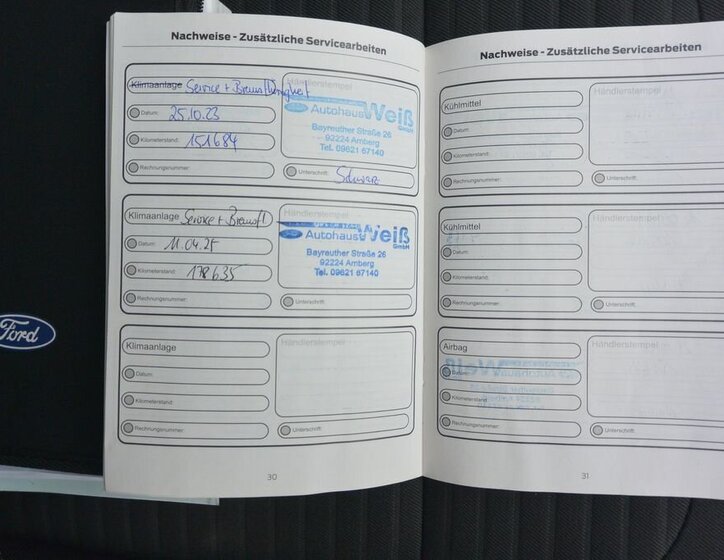 Nachweise - Zusätzliche Servicearbeiten
Klimaanlage Service + Bremsflüssigkeit
Datum: 25.10.23
Kilometerstand: 151684
Rechnungsnummer:
Händlerstempel
Ford Autohaus Weiß
GmbH
Bayreuther Straße 26
92224 Amberg
Tel. 09621 67140
Unterschrift: Schwarz
Klimaanlage Service + Bremsfl
Datum: 11.04.25
Kilometerstand: 178635
Rechnungsnummer:
Händlerstempel
Ford Autohaus Weiß
GmbH
Bayreuther Straße 26
92224 Amberg
Tel. 09621 67140
Unterschrift:
Klimaanlage
Datum:
Kilometerstand:
Rechnungsnummer:
Händlerstempel
Unterschrift:
30
Nachweise - Zusätzliche Servicearbeiten
Kühlmittel
Datum:
Kilometerstand:
Rechnungsnummer:
Händlerstempel
Unterschrift:
Kühlmittel
Datum:
Kilometerstand:
Rechnungsnummer:
Händlerstempel
Unterschrift:
Airbag
Datum:
Kilometerstand:
Rechnungsnummer:
Händlerstempel
Unterschrift:
31
Ford